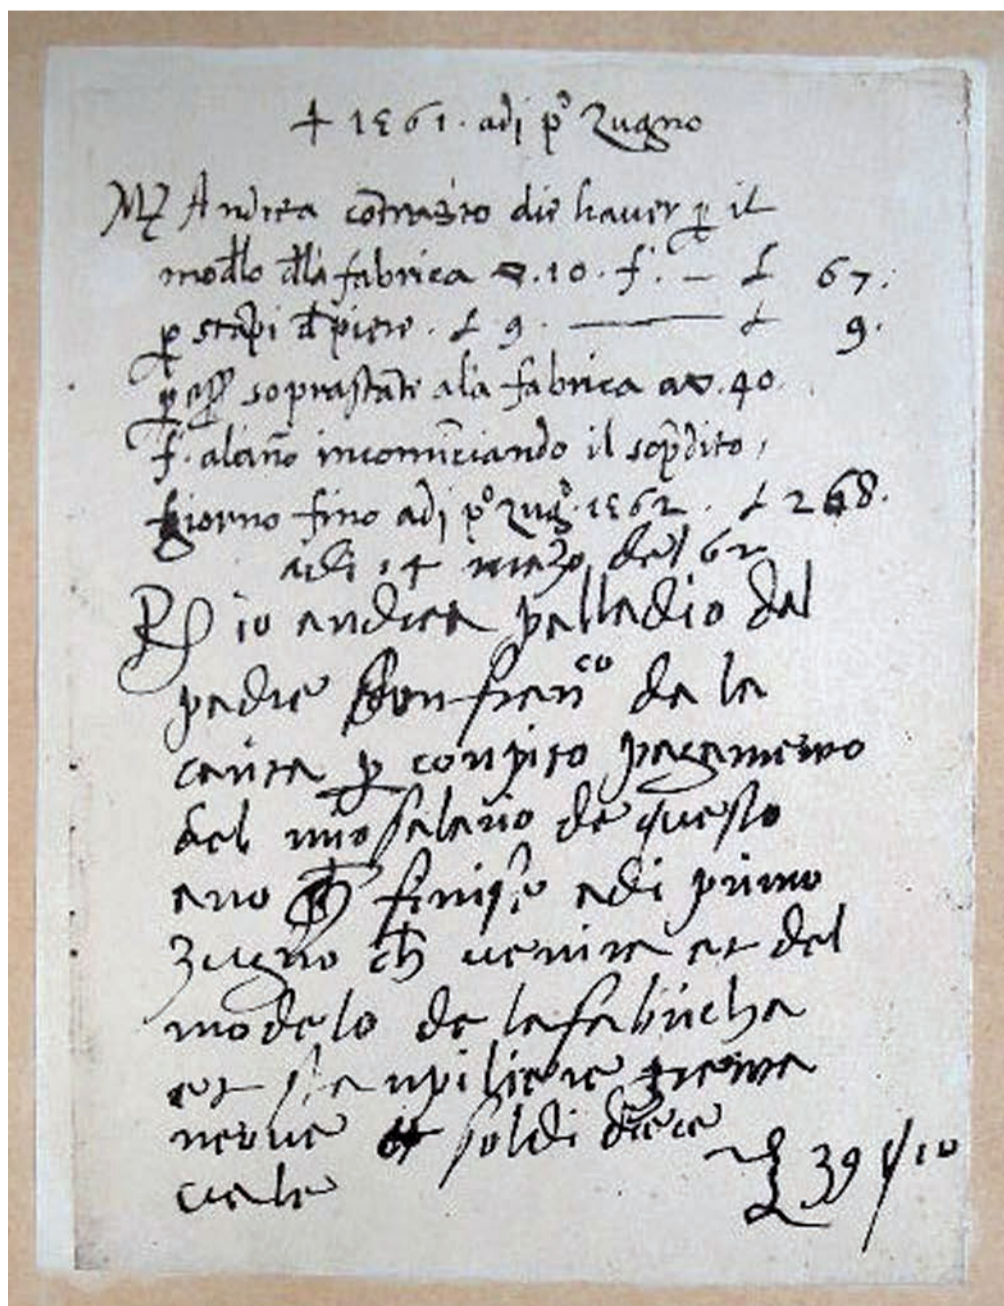 + 1561. adj p° Zugno
M Andrea contrascrito die haver p il
modlo dla fabrica .10. f. — £ 67.
p stapi d piere. £ 9. —— £ 9.
p soprastante ala fabrica a .40.
f. alano incominciando il sopdito
giorno fino adj p° zug° 1562. £ 268.
adi 14 marzo del 62
R io andrea palladio dal
padre Don fran^co da la
carita p conpito pagamento
del mio salario de questo
ano ch finise adi primo
zugno ch venira et del
modelo de la fabricha
et stanpi de piere trenta
nerve et soldi diece
vale £ 39 s/10